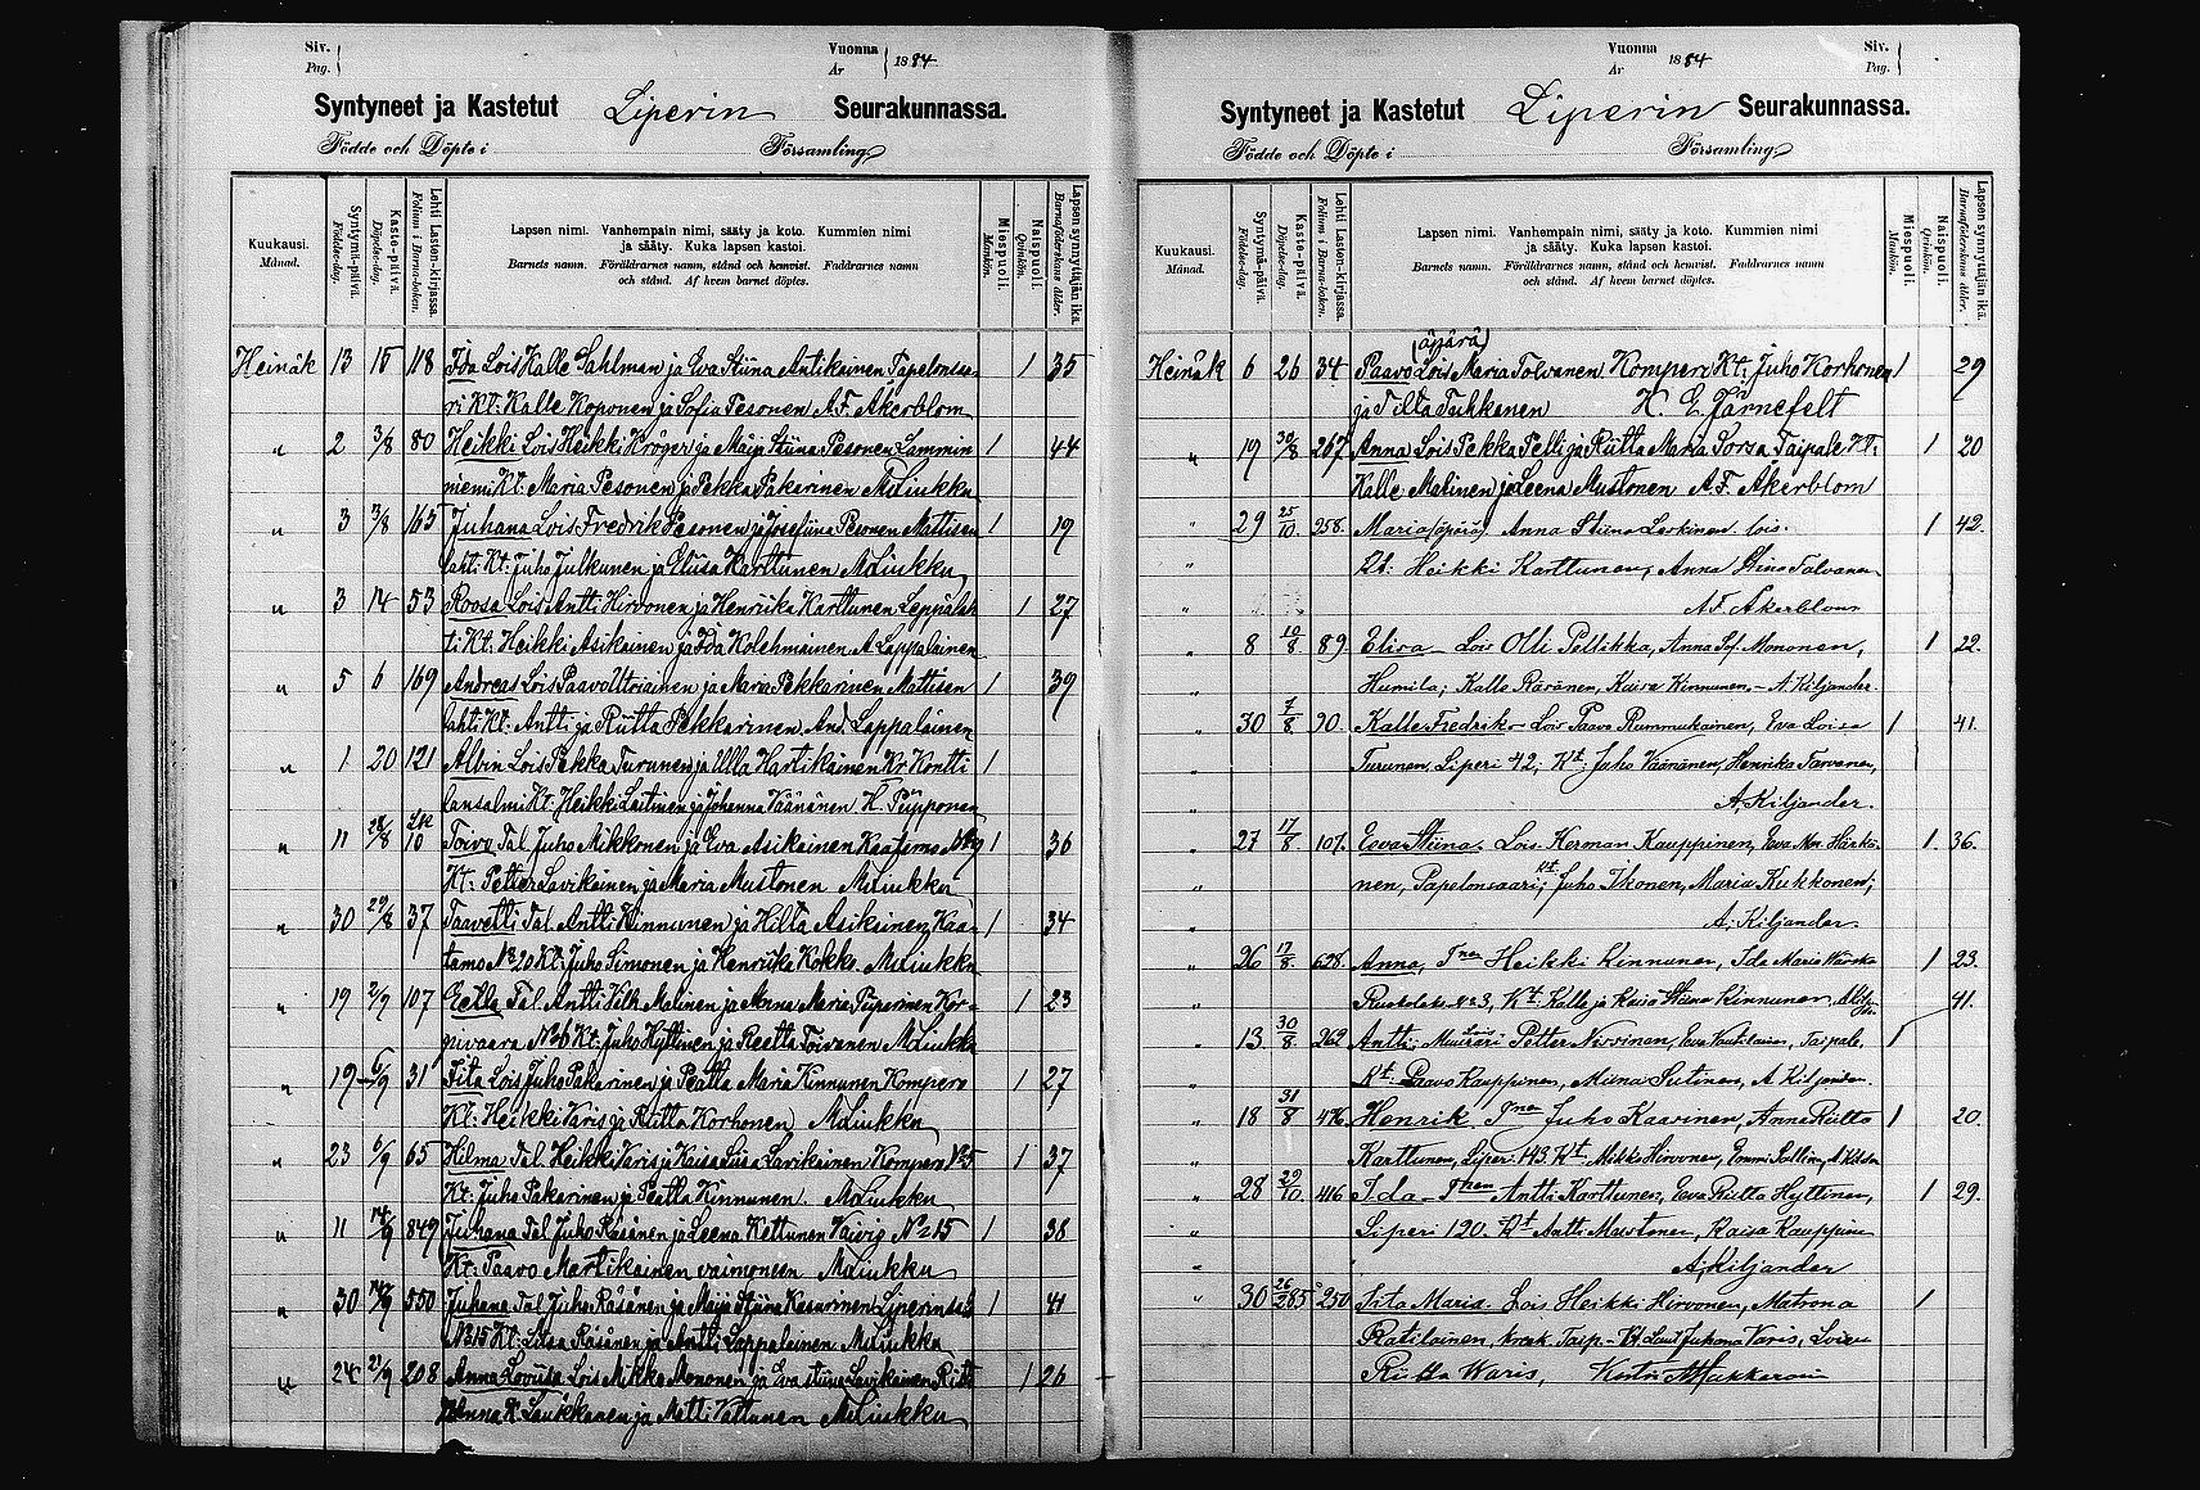 Siv.
Pag.
Vuonna
År
1884
Syntyneet ja Kastetut Liperin Seurakunnassa.
Födde och Döpte i Församling
Kuukausi.
Månad.
Syntymä-päivä.
Födelse-dag.
Kaste-päivä.
Döpelse-dag.
Lehti Lasten-kirjassa.
Folium i Barna-boken.
Lapsen nimi. Vanhempain nimi, sääty ja koto. Kummien nimi
ja sääty. Kuka lapsen kastoi.
Barnets namn. Föräldrarnes namn, stånd och hemvist. Faddrarnes namn
och stånd. Af hvem barnet döptes.
Miespuoli.
Mankön.
Naispuoli.
Qvinkön.
Lapsen synnyttäjän ikä.
Barnaföderskans ålder.
Heinäk 13 15 118 Ida Lois Kalle Sahlman ja Eva Stiina Antikainen Papelonsaa- 1 35
ri Kt: Kalle Koponen ja Sofia Pesonen A.F. Åkerblom
" 2 3/8 80 Heikki Lois Heikki Kröger ja Maija Stiina Pesonen Lammin 1 44
niemi Kt: Maria Pesonen ja Pekka Pakarinen M Liukku
" 3 3/8 165 Juhana Lois Fredrik Pesonen ja Josefiina Pesonen Mattisen 1 19
lahti Kt: Juho Julkunen ja Eliisa Karttunen M Liukku
" 3 14 53 Roosa Lois Antti Hirvonen ja Henriika Karttunen Leppälah 1 27
ti Kt: Heikki Asikainen ja Ida Kolehmainen A Lappalainen
" 5 6 169 Andreas Lois Paavo Uttriainen ja Maria Pekkarinen Mattisen 1 39
lahti Kt: Antti ja Riitta Pekkarinen And. Lappalainen
" 1 20 121 Albin Lois Pekka Turunen ja Ulla Hartikainen Kr Kontti 1
lansalmi Kt: Heikki Laitinen ja Johanna Väänänen H. Piipponen
" 11 28/8 10 Toivo Tal Juho Mikkonen ja Eva Asikainen Kaatamo 1 36
Kt: Petter Lavikainen ja Maria Mustonen M Liukku
" 30 29/8 37 Taavetti Tal. Antti Kinnunen ja Hilta Asikainen Kaa- 1 34
tamo No 20 Kt: Juho Simonen ja Henriika Kokko M Liukku
" 19 2/9 107 Eetla Tal Antti Vilh Matinen ja Anna Maria Piiparinen Kor- 1 23
pivaara No 6 Kt: Juho Hyttinen ja Reetta Toivanen M Liukku
" 19 6/9 31 Fita Lois Juho Pakarinen ja Peatta Maria Kinnunen Kompero 1 27
Kt: Heikki Varis ja Riitta Korhonen M Liukku
" 23 6/9 65 Hilma Tal. Heikki Varis ja Kaisa Liisa Lavikainen Kompero No 5 1 37
Kt: Juho Pakarinen ja Peatta Kinnunen. M Liukku
" 11 14/9 849 Juhana Tal Juho Räsänen ja Leena Kettunen Vaivio No 15 1 38
Kt: Paavo Martikainen vaimoneen M Liukku
" 30 14/9 550 Juhana Tal Juho Räsänen ja Maija Stiina Kasurinen 1 41
No 15 Kt: Liisa Räsänen ja Antti Lappalainen M Liukku
" 24 21/9 208 Anna Loviisa Lois Mikko Mononen ja Eva Stiina Lavikainen Risti 1 26
Anna K Laukkanen ja Matti Vattunen M Liukku
Vuonna
År
1884
Siv.
Pag.
Syntyneet ja Kastetut Liperin Seurakunnassa.
Födde och Döpte i Församling
Kuukausi.
Månad.
Syntymä-päivä.
Födelse-dag.
Kaste-päivä.
Döpelse-dag.
Lehti Lasten-kirjassa.
Folium i Barna-boken.
Lapsen nimi. Vanhempain nimi, sääty ja koto. Kummien nimi
ja sääty. Kuka lapsen kastoi.
Barnets namn. Föräldrarnes namn, stånd och hemvist. Faddrarnes namn
och stånd. Af hvem barnet döptes.
Miespuoli.
Mankön.
Naispuoli.
Qvinkön.
Lapsen synnyttäjän ikä.
Barnaföderskans ålder.
(äpärä)
Heinäk 6 26 34 Paavo Lois Maria Tolvanen Kompero Kt: Juho Korhonen 1 29
ja Tilta Tuhkanen K. E. Järnefelt
" 19 30/8 267 Anna Lois Pekka Pelli ja Riitta Maria Sorsa Taipale Kt: 1 20
Kalle Matinen ja Leena Mustonen A.F. Åkerblom
" 29 25/10. 258. Maria (äpärä) Anna Stiina Leskinen lois. 1 42.
" Kt: Heikki Karttunen, Anna Stina Tolvanen
" A F. Åkerblom
" 8 10/8. 89. Elisa - Lois Olli Pellikka, Anna Sof. Mononen, 1 22.
" Humila; Kalle Räsänen, Kaisa Kinnunen. - A. Kiljander.
" 30 7/8 90. Kalle Fredrik - Lois Paavo Rummukainen, Eva Loisa 1 41.
" Turunen, Liperi 42; Kt: Juho Väänänen, Henrika Tarvanen,
" A. Kiljander.
" 27 17/8. 107. Eeva Stiina. Lois Herman Kauppinen, Eeva Mar. Härkö- 1. 36.
" nen, Papelonsaari; Kt: Juho Ikonen, Maria Kukkonen;
" A. Kiljander.
" 26 17/8. 628. Anna, Tnen Heikki Kinnunen, Ida Maria 1 23.
" Kt: Kalle ja Kaisa Stiina Kinnunen, 41.
" 13 30/8. 262 Antti; Muurari Lois Petter Nissinen, Eeva Vautilainen, Taipale, 1
" Kt: Paavo Kauppinen, Miina Sutinen, A Kiljander.
" 18 31/8 476. Henrik Tnen Juho Kaarinen, Anna Riitta 1 20.
" Karttunen, Liperi 143. Kt: Mikko Hirvonen, Emmi Sallinen,
" 28 29/10. 416 Ida - Tnen Antti Karttunen, Eeva Riitta Hyttinen, 1 29.
" Liperi 120. Kt Antti Mustonen, Kaisa Kauppinen
" A. Kiljander
" 30 26/285 250 Fita Maria. Lois Heikki Hirvonen, Matrona 1
Ratilainen, kreik. Taip. - Kt. Juhana Varis,
Riitta Waris,